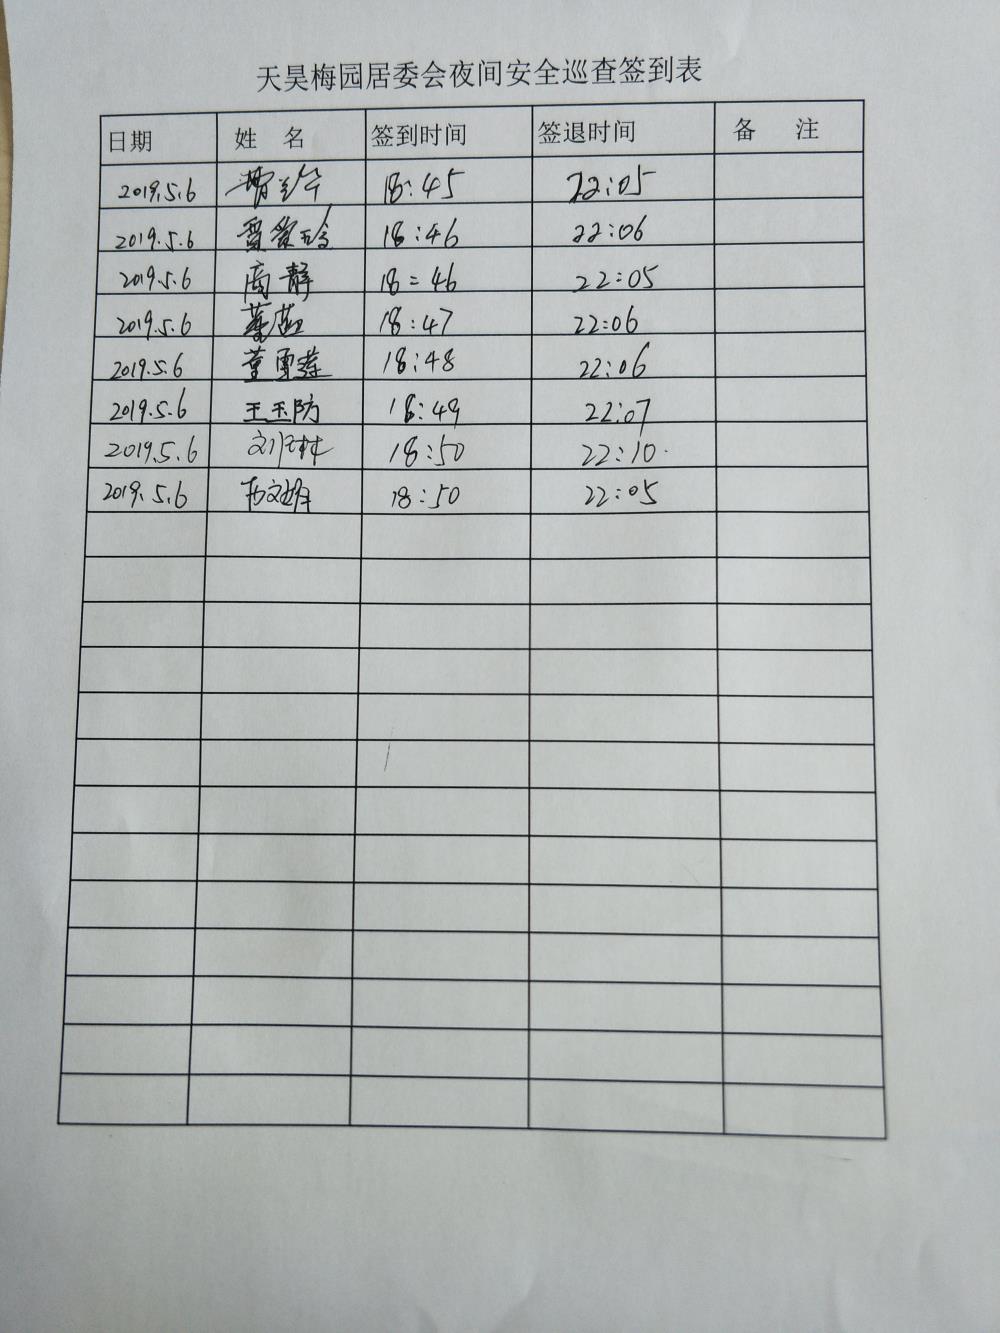 天昊梅园居委会夜间安全巡查签到表
日期 姓 名 签到时间 签退时间 备 注
2019.5.6 18:45 22:05
2019.5.6 18:46 22:06
2019.5.6 高静 18:46 22:05
2019.5.6 18:47 22:06
2019.5.6 董雪莲 18:48 22:06
2019.5.6 王玉防 18:49 22:07
2019.5.6 18:50 22:10
2019.5.6 18:50 22:05